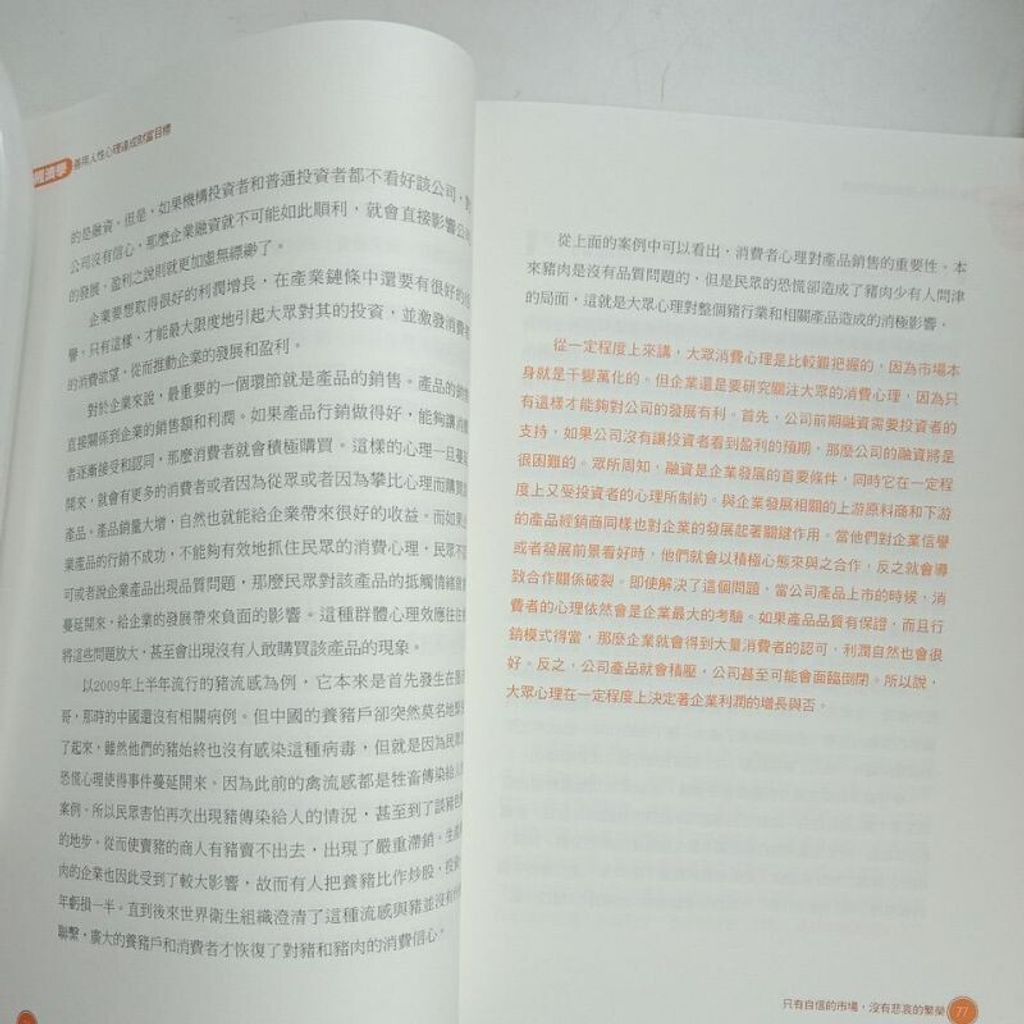 經濟學 善用人性心理達成財富目標
的是融資。但是，如果機構投資者和普通投資者都不看好該公司，對
公司沒有信心，那麼企業融資就不可能如此順利，就會直接影響公司
的發展，盈利之說則就更加虛無縹緲了。
企業要想取得很好的利潤增長，在產業鏈條中還要有很好的
譽。只有這樣，才能最大限度地引起大眾對其的投資，並激發消費者
的消費欲望，從而推動企業的發展和盈利。
對於企業來說，最重要的一個環節就是產品的銷售。產品的銷
直接關係到企業的銷售額和利潤。如果產品行銷做得好，能夠讓消
者逐漸接受和認同，那麼消費者就會積極購買。這樣的心理一旦蔓
開來，就會有更多的消費者或者因為從眾或者因為攀比心理而購買
產品。產品銷量大增，自然也就能給企業帶來很好的收益。而如果
業產品的行銷不成功，不能夠有效地抓住民眾的消費心理，民眾不
可或者說企業產品出現品質問題，那麼民眾對該產品的抵觸情緒
蔓延開來，給企業的發展帶來負面的影響。這種群體心理效應往往
將這些問題放大，甚至會出現沒有人敢購買該產品的現象。
以2009年上半年流行的豬流感為例，它本來是首先發生在
哥，那時的中國還沒有相關病例。但中國的養豬戶卻突然莫名地
了起來，雖然他們的豬始終也沒有感染這種病毒，但就是因為民眾
恐慌心理使得事件蔓延開來。因為此前的禽流感都是牲畜傳染給人
案例，所以民眾害怕再次出現豬傳染給人的情況，甚至到了談豬色
的地步。從而使賣豬的商人有豬賣不出去，出現了嚴重滯銷。生
肉的企業也因此受到了較大影響，故而有人把養豬比作炒股，投資
年虧損一半。直到後來世界衛生組織澄清了這種流感與豬並沒有
聯繫，廣大的養豬戶和消費者才恢復了對豬和豬肉的消費信心。
從上面的案例中可以看出，消費者心理對產品銷售的重要性。本
來豬肉是沒有品質問題的，但是民眾的恐慌卻造成了豬肉少有人問津
的局面，這就是大眾心理對整個豬行業和相關產品造成的消極影響。
從一定程度上來講，大眾消費心理是比較難把握的，因為市場本
身就是千變萬化的。但企業還是要研究關注大眾的消費心理，因為只
有這樣才能夠對公司的發展有利。首先，公司前期融資需要投資者的
支持，如果公司沒有讓投資者看到盈利的預期，那麼公司的融資將是
很困難的。眾所周知，融資是企業發展的首要條件，同時它在一定程
度上又受投資者的心理所制約。與企業發展相關的上游原料商和下游
的產品經銷商同樣也對企業的發展起著關鍵作用。當他們對企業信譽
或者發展前景看好時，他們就會以積極心態來與之合作，反之就會導
致合作關係破裂。即使解決了這個問題，當公司產品上市的時候，消
費者的心理依然會是企業最大的考驗。如果產品品質有保證，而且行
銷模式得當，那麼企業就會得到大量消費者的認可，利潤自然也會很
好。反之，公司產品就會積壓，公司甚至可能會面臨倒閉。所以說，
大眾心理在一定程度上決定著企業利潤的增長與否。
只有自信的市場，沒有悲哀的繁榮 77